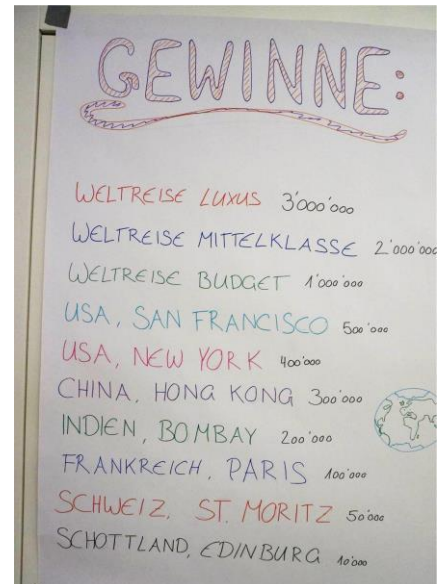 GEWINNE:
WELTREISE LUXUS 3'000'000
WELTREISE MITTELKLASSE 2'000'000
WELTREISE BUDGET 1'000'000
USA, SAN FRANCISCO 500'000
USA, NEW YORK 400'000
CHINA, HONG KONG 300'000
INDIEN, BOMBAY 200'000
FRANKREICH, PARIS 100'000
SCHWEIZ, ST. MORITZ 50'000
SCHOTTLAND, EDINBURG 10'000